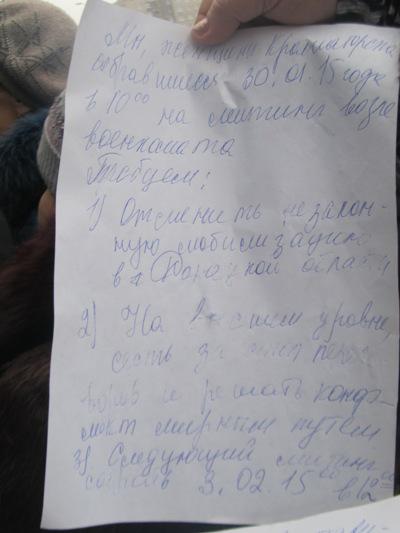 Мы, женщины Краматорска
собравшиеся 30.01.15 года
в 10⁰⁰ на митинг возле
военкомата
Требуем:
1) Отменить незакон-
ную мобилизацию
в Донецкой области
2) На высшем уровне,
сесть за стол перего-
воров и решать конф-
ликт мирным путем
3) Следующий митинг
3.02.15